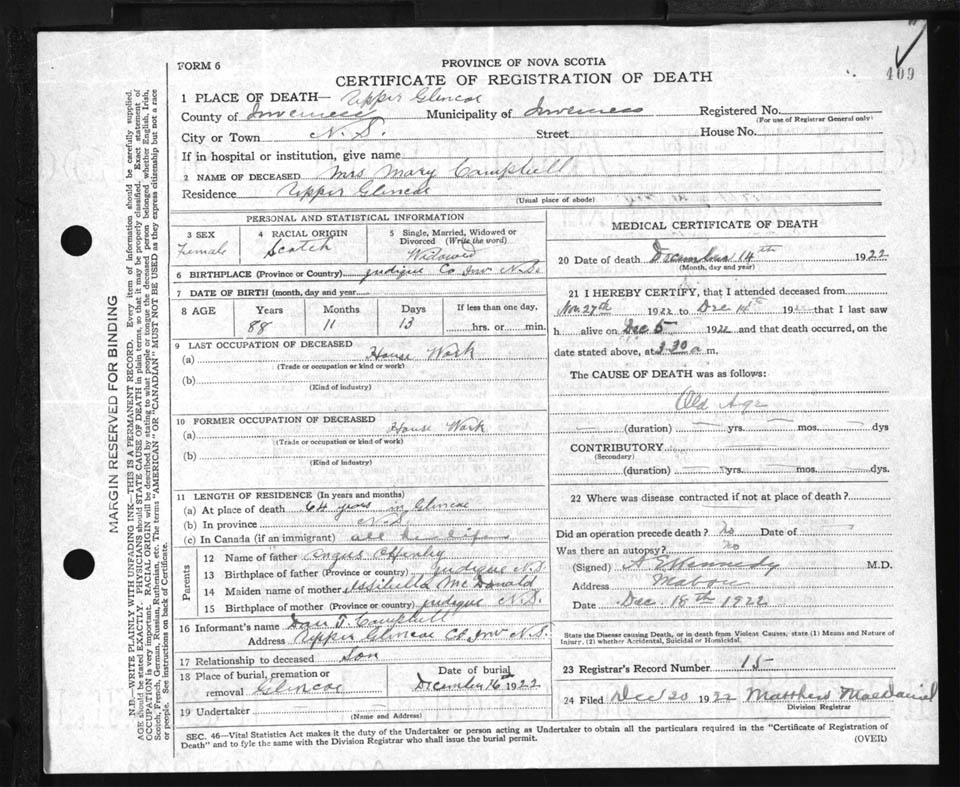 409
FORM 6
PROVINCE OF NOVA SCOTIA
CERTIFICATE OF REGISTRATION OF DEATH
1 PLACE OF DEATH— Upper Glencoe
County of Inverness Municipality of Inverness Registered No.
(For use of Registrar General only)
City or Town N.S. Street House No.
If in hospital or institution, give name
2 NAME OF DECEASED Mrs Mary Campbell
Residence Upper Glencoe
(Usual place of abode)
PERSONAL AND STATISTICAL INFORMATION
3 SEX 4 RACIAL ORIGIN 5 Single, Married, Widowed or
Divorced (Write the word)
Female Scotch Widowed
6 BIRTHPLACE (Province or Country) Judique Co Inv N.S.
7 DATE OF BIRTH (month, day and year)
8 AGE Years Months Days If less than one day,
88 11 13 hrs. or min.
9 LAST OCCUPATION OF DECEASED
(a) House Work
(Trade or occupation or kind or work)
(b)
(Kind of industry)
10 FORMER OCCUPATION OF DECEASED
(a) House Work
(Trade or occupation or kind of work)
(b)
(Kind of industry)
11 LENGTH OF RESIDENCE (In years and months)
(a) At place of death 64 years in Glencoe
(b) In province N.S.
(c) In Canada (if an immigrant) all her life
Parents
12 Name of father Angus
13 Birthplace of father (Province or country) Judique N.S.
14 Maiden name of mother McDonald
15 Birthplace of mother (Province or country) Judique N.S.
16 Informant's name Dan Campbell
Address Upper Glencoe Co Inv N.S.
17 Relationship to deceased Son
18 Place of burial, cremation or Date of burial
removal Glencoe December 16 1922
19 Undertaker
(Name and Address)
MEDICAL CERTIFICATE OF DEATH
20 Date of death December 14th 1922
(Month, day and year)
21 I HEREBY CERTIFY, that I attended deceased from
Nov 27th 1922 to Dec 14th 19 that I last saw
h alive on Dec 5 1922 and that death occurred, on the
date stated above, at 3.30 a m.
The CAUSE OF DEATH was as follows:
Old Age
(duration) yrs. mos. dys
CONTRIBUTORY
(Secondary)
(duration) yrs. mos. dys.
22 Where was disease contracted if not at place of death?
Did an operation precede death? No Date of
Was there an autopsy? no
(Signed) Kennedy M.D.
Address Mabou
Date Dec. 18th 1922
State the Disease causing Death, or in death from Violent Causes, state (1) Means and Nature of
Injury. (2) whether Accidental, Suicidal or Homicidal.
23 Registrar's Record Number 15
24 Filed Dec 20 1922 Matthew MacDaniel
Division Registrar
SEC. 46—Vital Statistics Act makes it the duty of the Undertaker or person acting as Undertaker to obtain all the particulars required in the "Certificate of Registration of
Death" and to fyle the same with the Division Registrar who shall issue the burial permit.
(OVER)
MARGIN RESERVED FOR BINDING
N.B.—WRITE PLAINLY WITH UNFADING INK—THIS IS A PERMANENT RECORD. Every item of information should be carefully supplied.
AGE should be stated EXACTLY. PHYSICIANS should STATE CAUSE OF DEATH in plain terms, so that it may be properly classified. Exact statement of
OCCUPATION is very important. RACIAL ORIGIN will be described by stating to what people or tongue the deceased person belonged whether English, Irish,
Scotch, French, German, Russian, Ruthenian, etc. The terms "AMERICAN" OR "CANADIAN" MUST NOT BE USED as they express citizenship but not a race
or people. See instructions on back of Certificate.